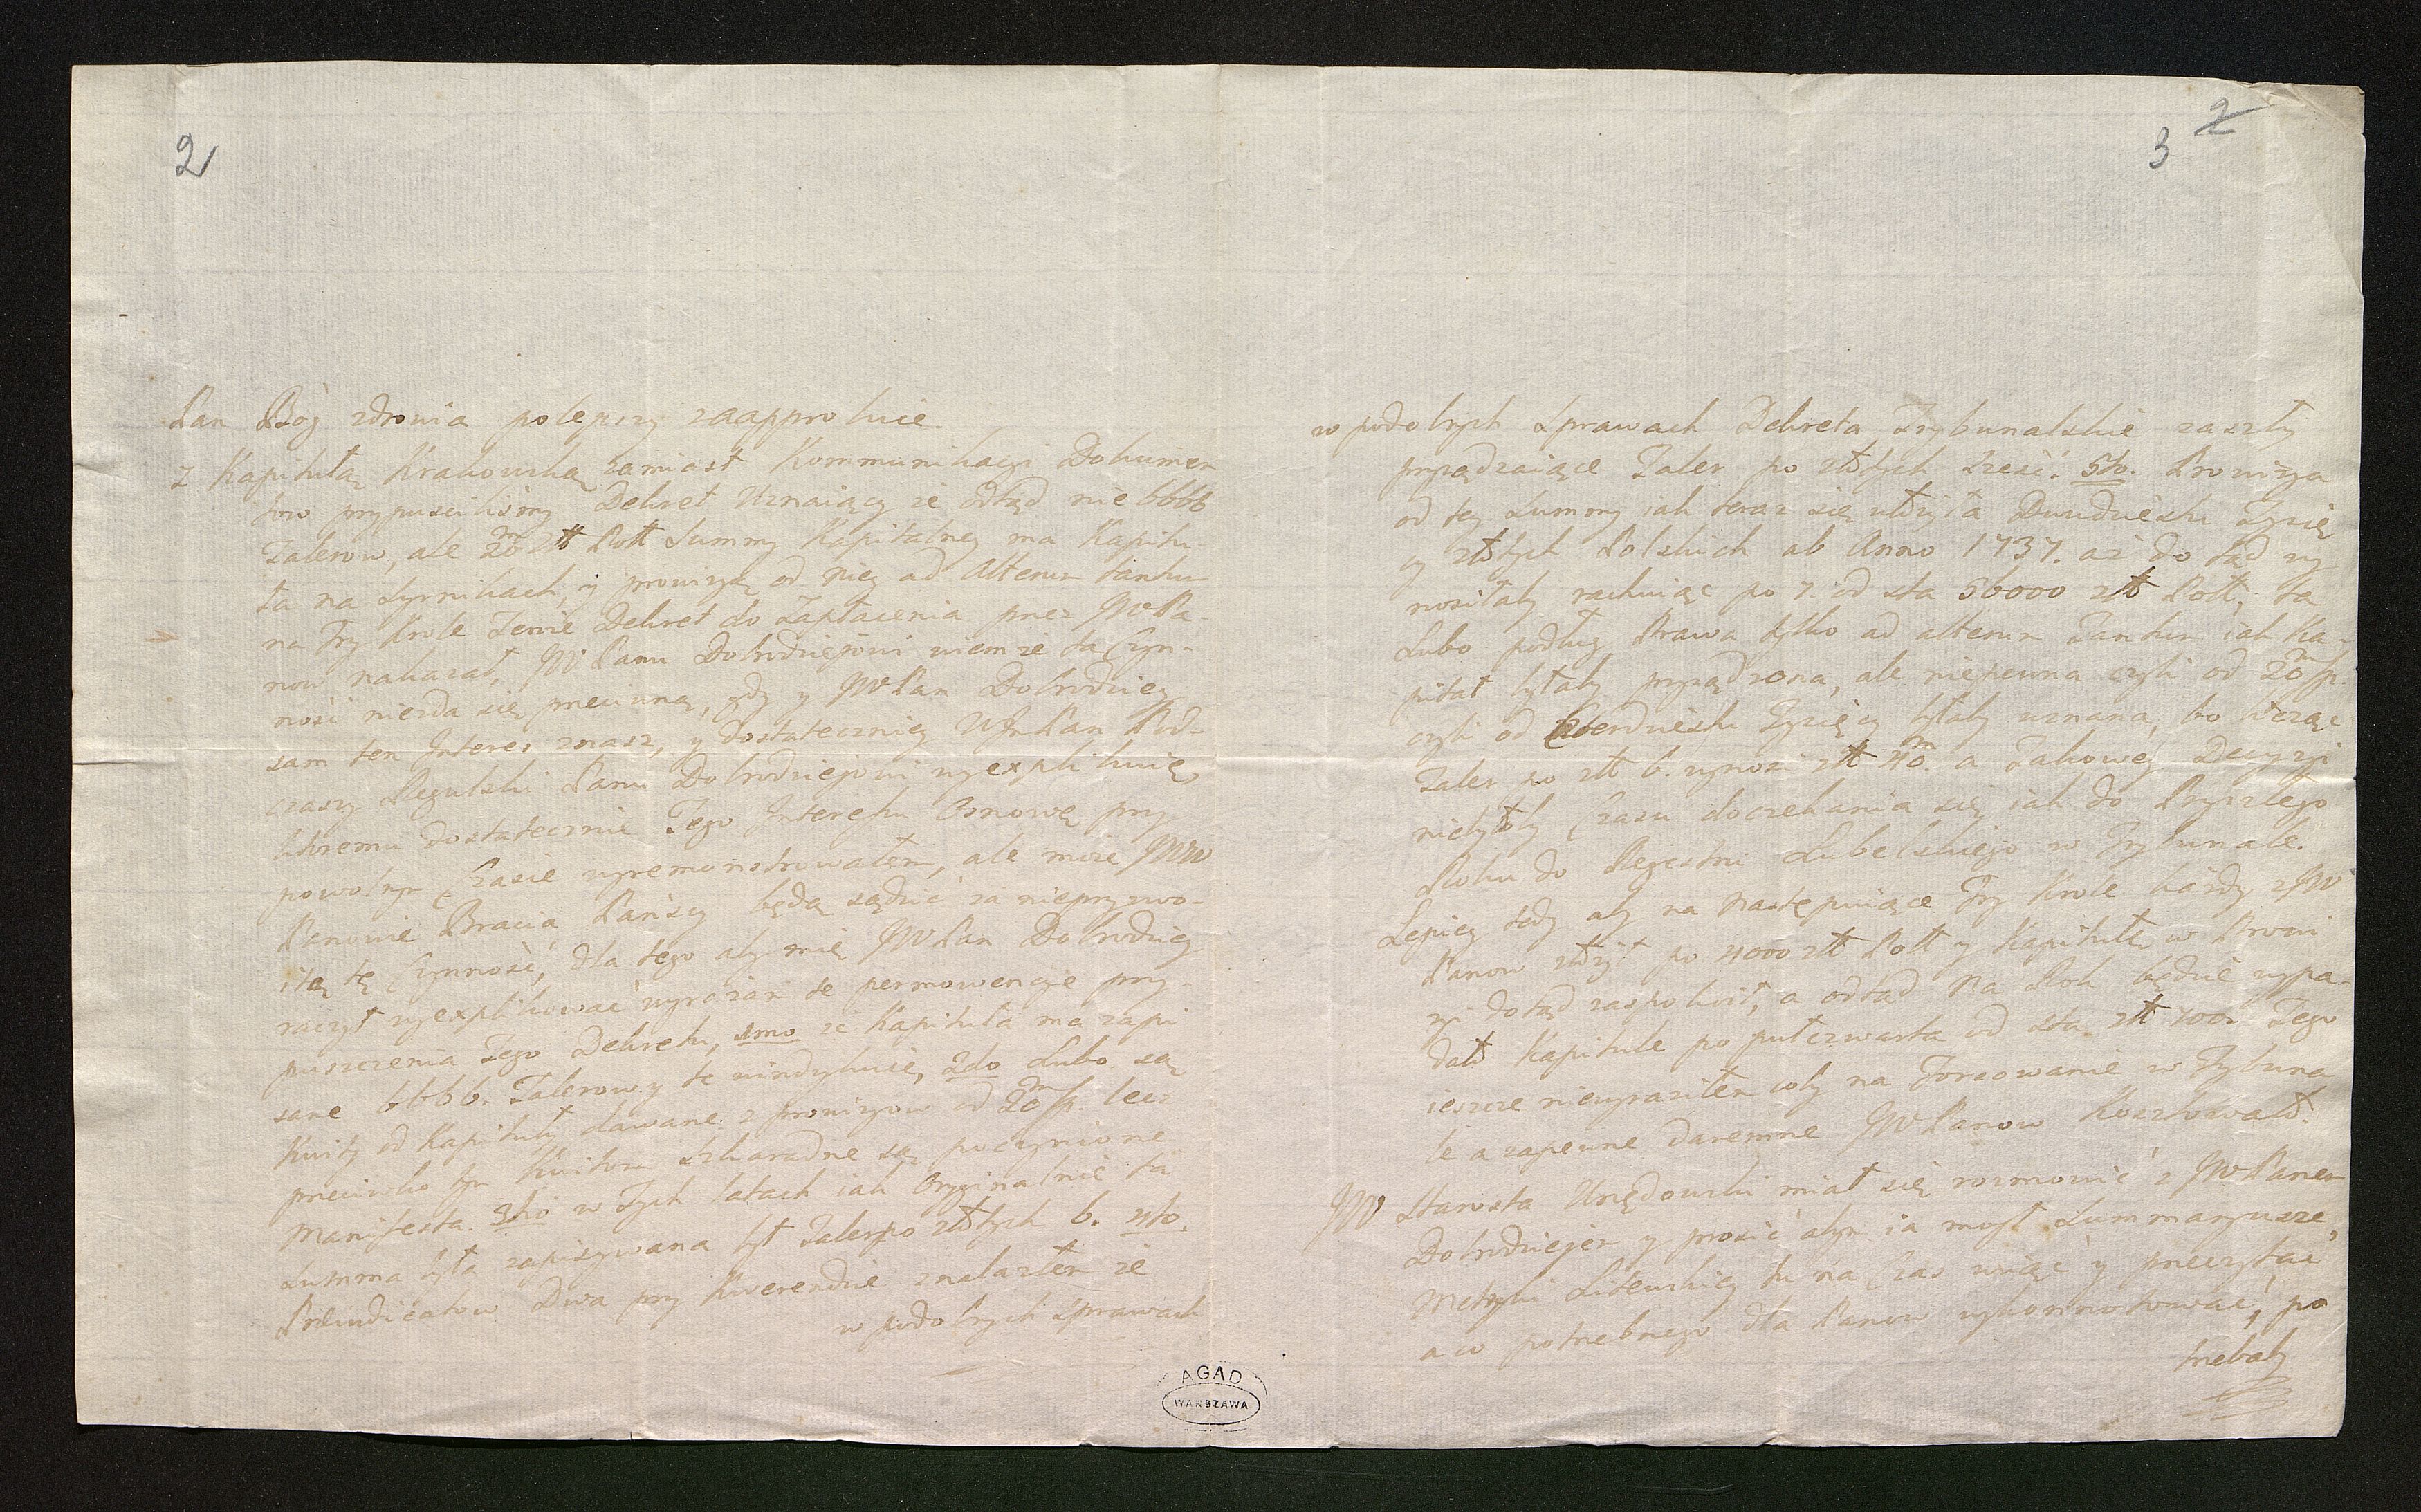 2
Pan Bóg zdrowia polepszy zaapprobuie.
Z Kapitułą Krakowską zamiast Kommunikacyi Dokumen
tow przypuscilismy Dekret Uznaiący że odtąd nie 6666
Talerow, ale 20m zł Poll Summy Kapitalney ma Kapitu-
ła na Syrnikach, y prowizyą od niey ad Alterum tantum
na Try Krole Tenże Dekret do Zapłacenia przez JWPa-
now nakazał, JWPanu Dobrodziejowi wiem że ta Czyn-
ność niezda się przeciwną, gdy y JWPan Dobrodziey
sam ten Interes znasz, y dostateczniey WJPan Pod-
czaszy Regulski Panu Dobrodziejowi wyexplikuie,
ktoremu dostatecznie Tego Interessu Osnowę przy
powolnym Czasie wyremonstrowałem, ale może JWW
Panowie Bracia Pańscy będą sądzić za nieprzyzwo-
itą tę Czynność, dla tego aby mię JWPan Dobrodziey
raczył wyexplikować wyrażam te permowencye przy-
puszczenia Tego Dekretu, 1mo że Kapituła ma zapi
sane 6666. Talerow y te windykuie, 2do Lubo są
Kwity od Kapituły dawane z prowizyow od 20m fp. lecz
przeciwko tym Kwitom szkaradne są poczynione
Manifesta. 3tio w Tych latach iak Oryginalnie ta
Summa była zapisywana był Taler po złotych 6. 4to.
Præiudicatow Dwa przy Kwerendzie znalazłem że
w podobnych sprawach
3 2
w podobnych Sprawach Dekreta Trybunalskie zaszły
przysądzaiące Taler po złotych sześć. 5to. Prowizya
od tey Summy iak teraz się ułożyła Dwudziestu Tysię
cy złotych Polskich ab Anno 1737. aż do tąd wy
nosiłaby rachuiąc po 7. od sta 56000 zł Poll, ta
Lubo podług Prawa tylko ad alterum Tantum iak Ka-
pitał byłaby przysądzona, ale niepewna czyli od 20m fp.
czyli od Czterdziestu Tysięcy byłaby uznana, bo licząc
Taler po zł 6. wynosi zł 40m. a Takowey Decyzyi
niebyłoby Czasu doczekania się iak do Przyszłego
Roku do Regestru Lubelskiego w Trybunale.
Lepiey tedy aby na następuiące Try Krole każdy z JW
Panow złożył po 4000 zł Poll y Kapitułę w Prowi
zyi dotąd zaspokoił, a odtąd na Rok będzie wypa-
dało Kapitule po pułczwarta od sta zł 700. Tego
ieszcze niewyraziłem coby na Forsowanie w Trybuna
le a zapewne daremne JWPanow Kosztowało.
JW Starosta Urzędowski miał się rozmowić z JWPanem
Dobrodziejem y prosić abym ia mógł Summaryusze,
Metryki Litewskiey tu na Czas wziąć y przeczytać
a co potrzebnego dla Panow wykonnotować, po
trzebaby
AGAD
WARSZAWA